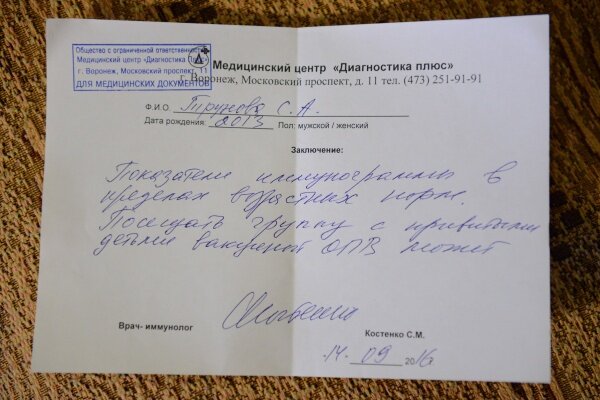 Общество с ограниченной ответственностью
Медицинский центр «Диагностика Плюс»
г. Воронеж, Московский проспект, 11
ДЛЯ МЕДИЦИНСКИХ ДОКУМЕНТОВ
Медицинский центр «Диагностика плюс»
г. Воронеж, Московский проспект, д. 11 тел. (473) 251-91-91
Ф.И.О. Трунова С. А.
Дата рождения: 2013 Пол: мужской / женский
Заключение:
Показатели иммунограммы в
пределах возрастных норм.
Посещать группу с привитыми
детьми вакциной ОПВ может
Врач- иммунолог
Костенко С.М.
14. 09 2016